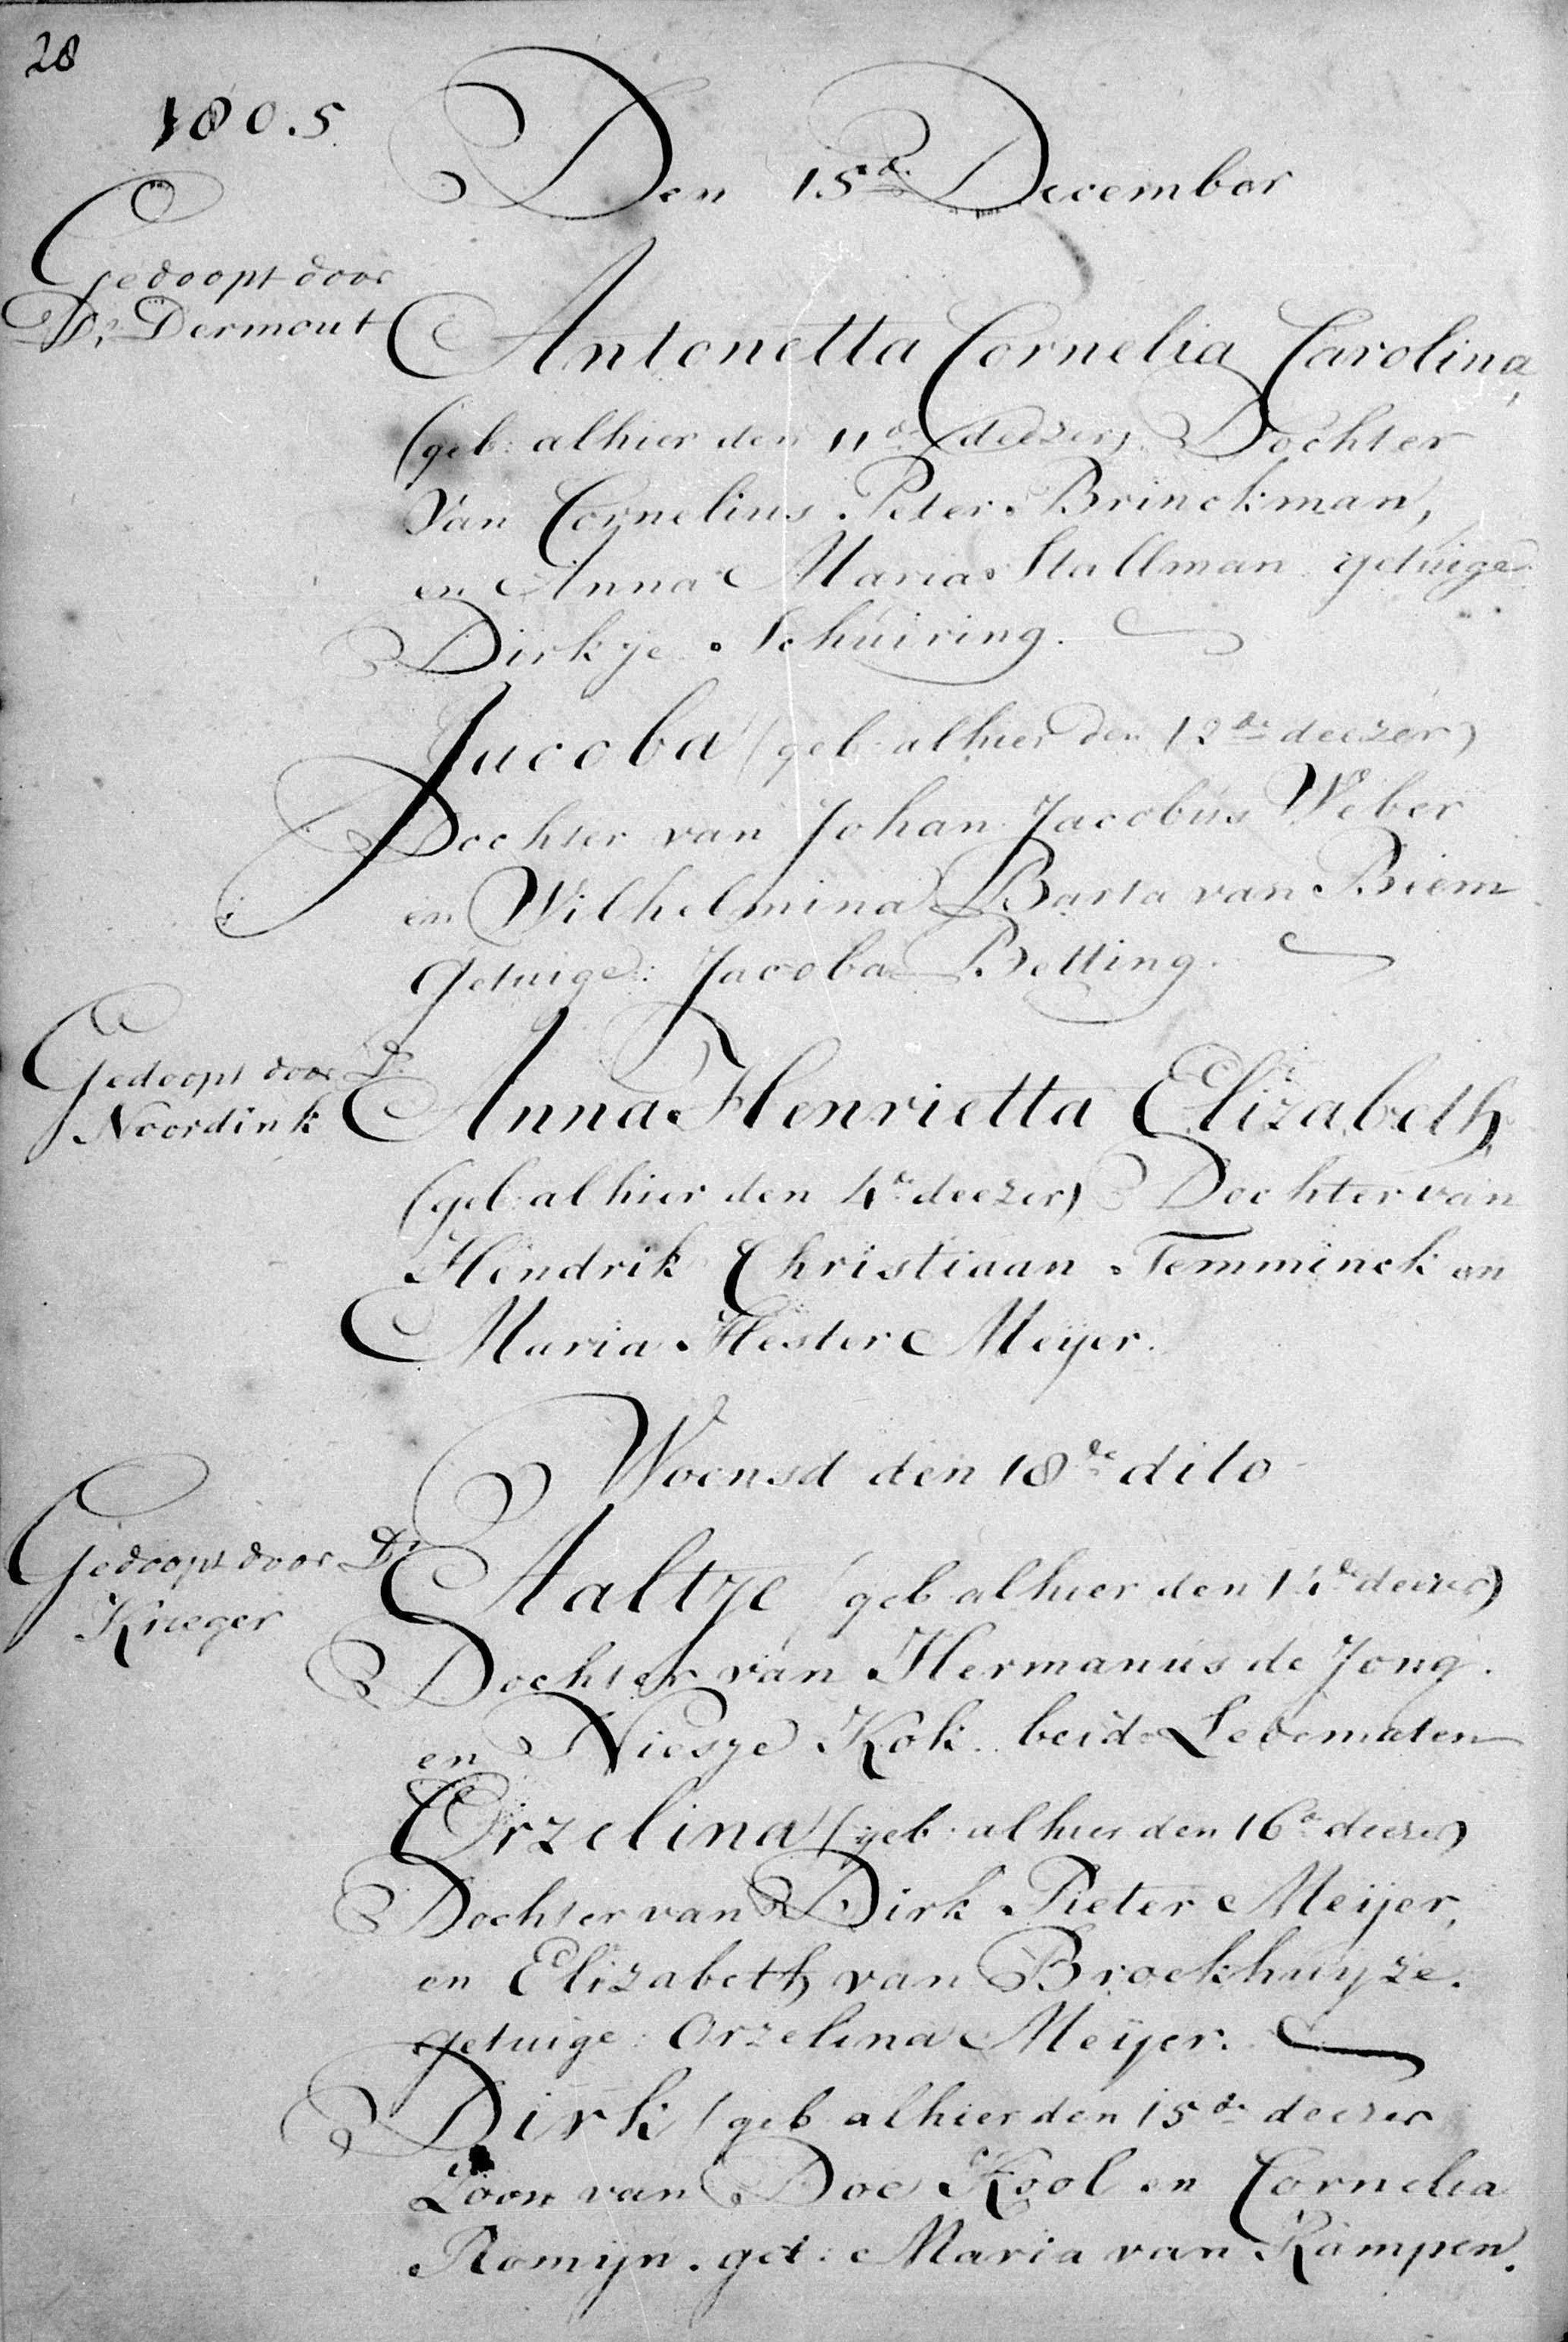 28
1805.
Den 15de December
Gedoopt door
Ds. Dermout
Antonetta Cornelia Carolina,
(geb: alhier den 11de deezer) Dochter
Van Cornelius Peter Brinckman,
en Anna Maria Stallman getuige
Dirkje Schuiring.
Jacoba (geb: alhier den 12de deezer)
Dochter van Johan Jacobus Weber
en Wilhelmina Barta van Biem
Getuige: Jacoba Betting.
Gedoopt door Ds.
Noordink
Anna Henrietta Elizabeth,
(geb: alhier den 4de deezer) Dochter van
Hendrik Christiaan Temminck en
Maria Hester Meijer.
Woensd den 18de dito
Gedoopt door Ds
Krieger
Aaltje (geb alhier den deezer)
Dochter van Hermanus de Jong.
en Niesje Kok. beide Ledematen
Orzelina (geb: alhier den 16de deezer)
Dochter van Dirk Pieter Meijer,
en Elizabeth van Broekhuyze.
getuige: Orzelina Meijer.
Dirk (geb alhier den 15de deezer
Zoon van Doe Kool en Cornelia
Romijn. get: Maria van Kampen.